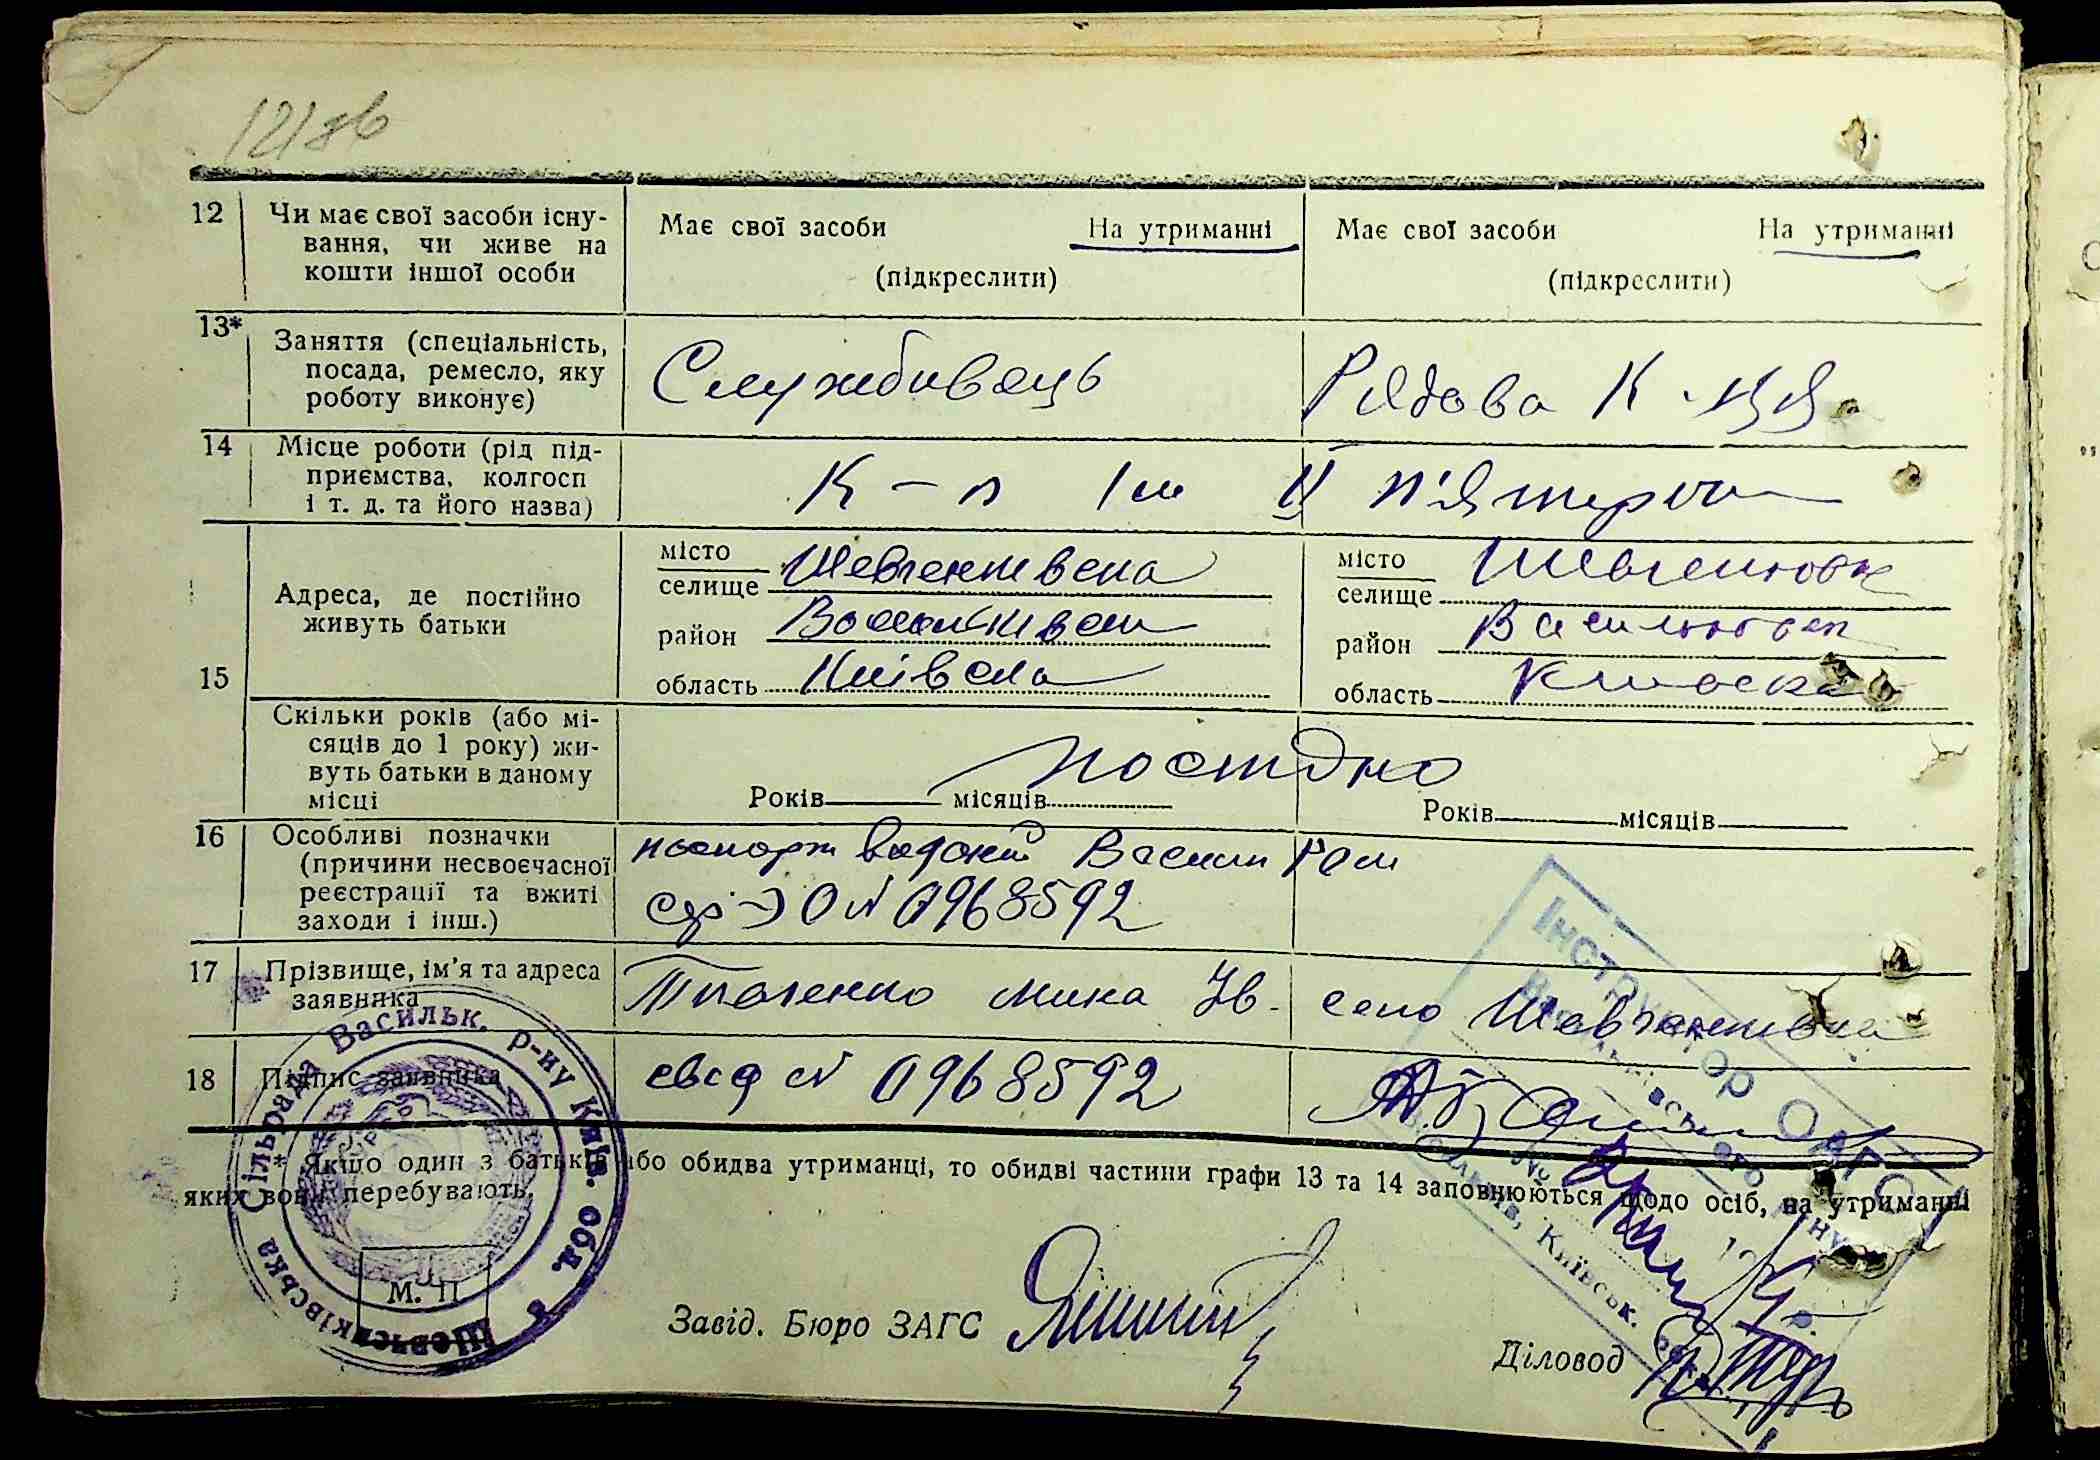 12186
12 Чи має свої засоби існу-
вання, чи живе на
кошти іншої особи
Має свої засоби На утриманні
(підкреслити)
Має свої засоби На утриманні
(підкреслити)
13* Заняття (спеціальність,
посада, ремесло, яку
роботу виконує)
Службовець
Рядова к-ця
14 Місце роботи (рід під-
приємства, колгосп
і т. д. та його назва)
К-п Ім II п'ятиріч
15 Адреса, де постійно
живуть батьки
місто
селище Шевченківка
район Васильків
область Київська
місто
селище Шевченківка
район Васильків
область Київська
Скільки років (або мі-
сяців до 1 року) жи-
вуть батьки в даному
місці
постійно
Років місяців
Років місяців
16 Особливі позначки
(причини несвоєчасної
реєстрації та вжиті
заходи і інш.)
паспорт виданий Васильк
сер ЭО № 0968592
17 Прізвище, ім'я та адреса
заявника
Ткаченко Ів. село Шевченківка
18 Підпис заявника
№ 0968592
* Якщо один з батьків або обидва утриманці, то обидві частини графи 13 та 14 заповнюються щодо осіб, на утриманні
яких вони перебувають.
М. П.
Завід. Бюро ЗАГС
Діловод
Шевченківська Сільрада Васильк. р-ну Київ. обл.
Інструктор ОАГС
Васильківського р-ну
Васильків, Київськ. обл.